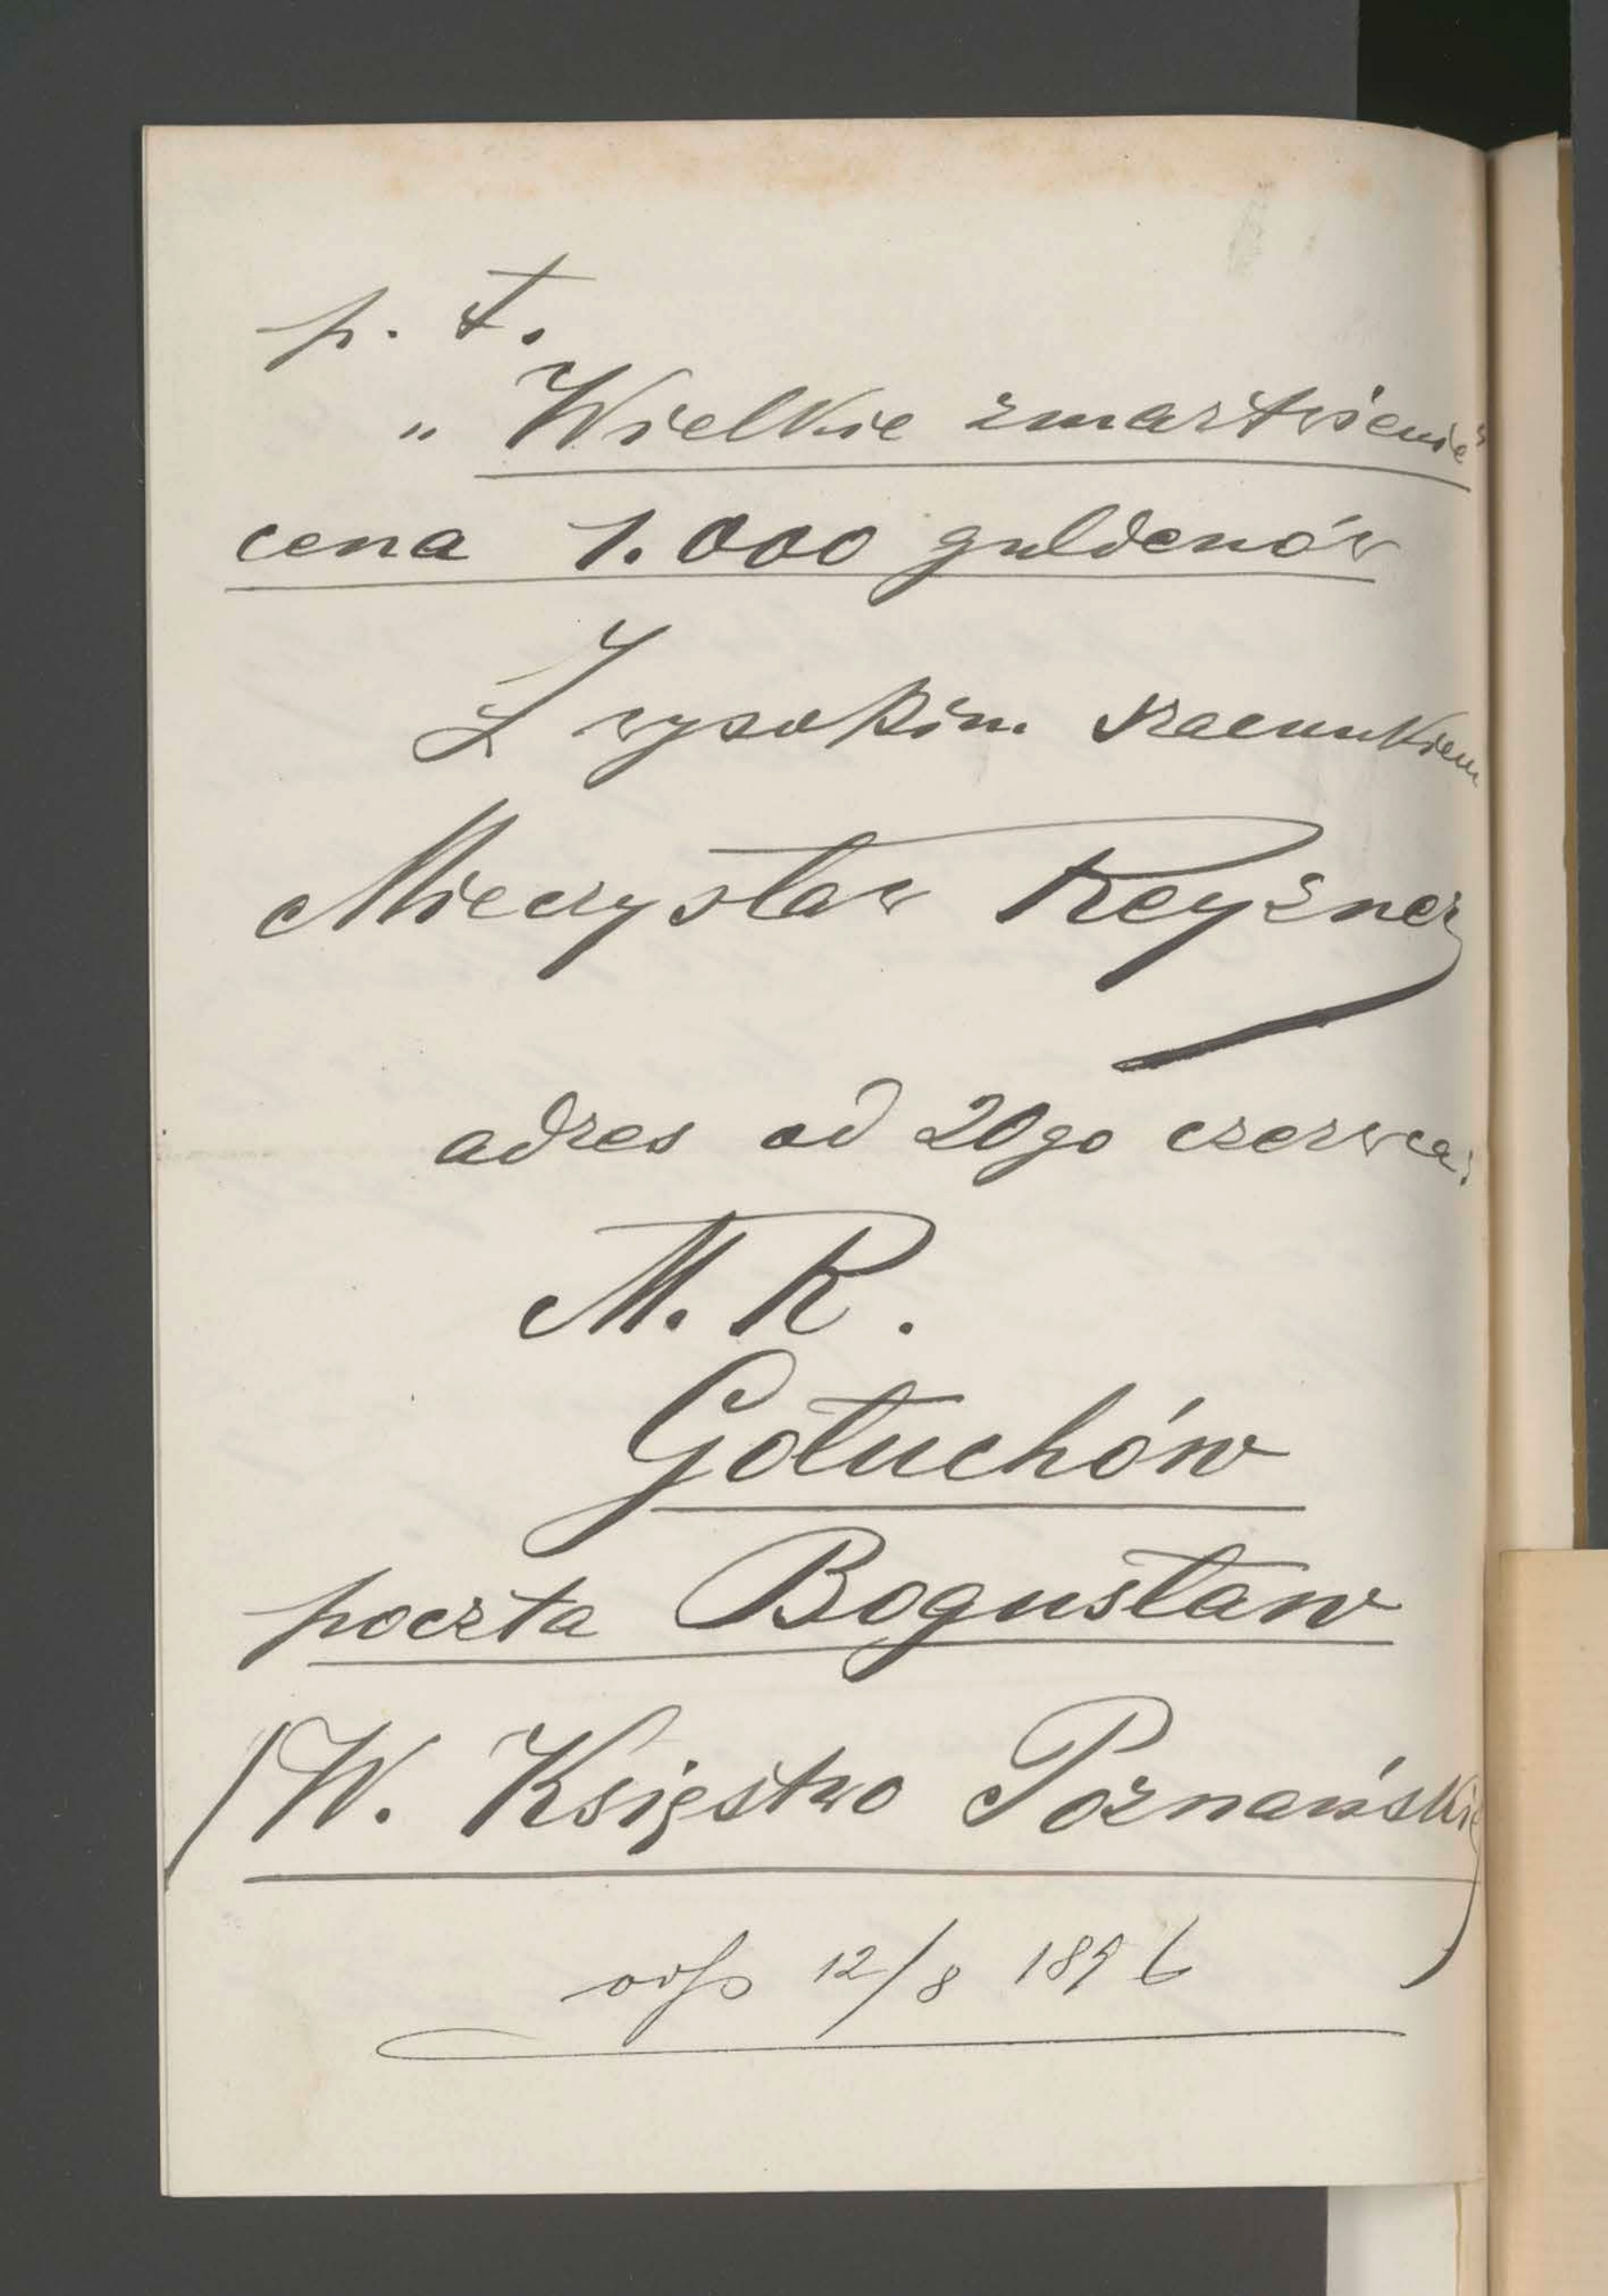 p. t.
„Wielkie zmartwienie"
cena 1.000 guldenów
Z wysokim szacunkiem
Mieczysław Reyzner
adres od 20go czerwca:
M. R.
Gołuchów
poczta Bogusław
(W. Księstwo Poznańskie)
12/8 1896